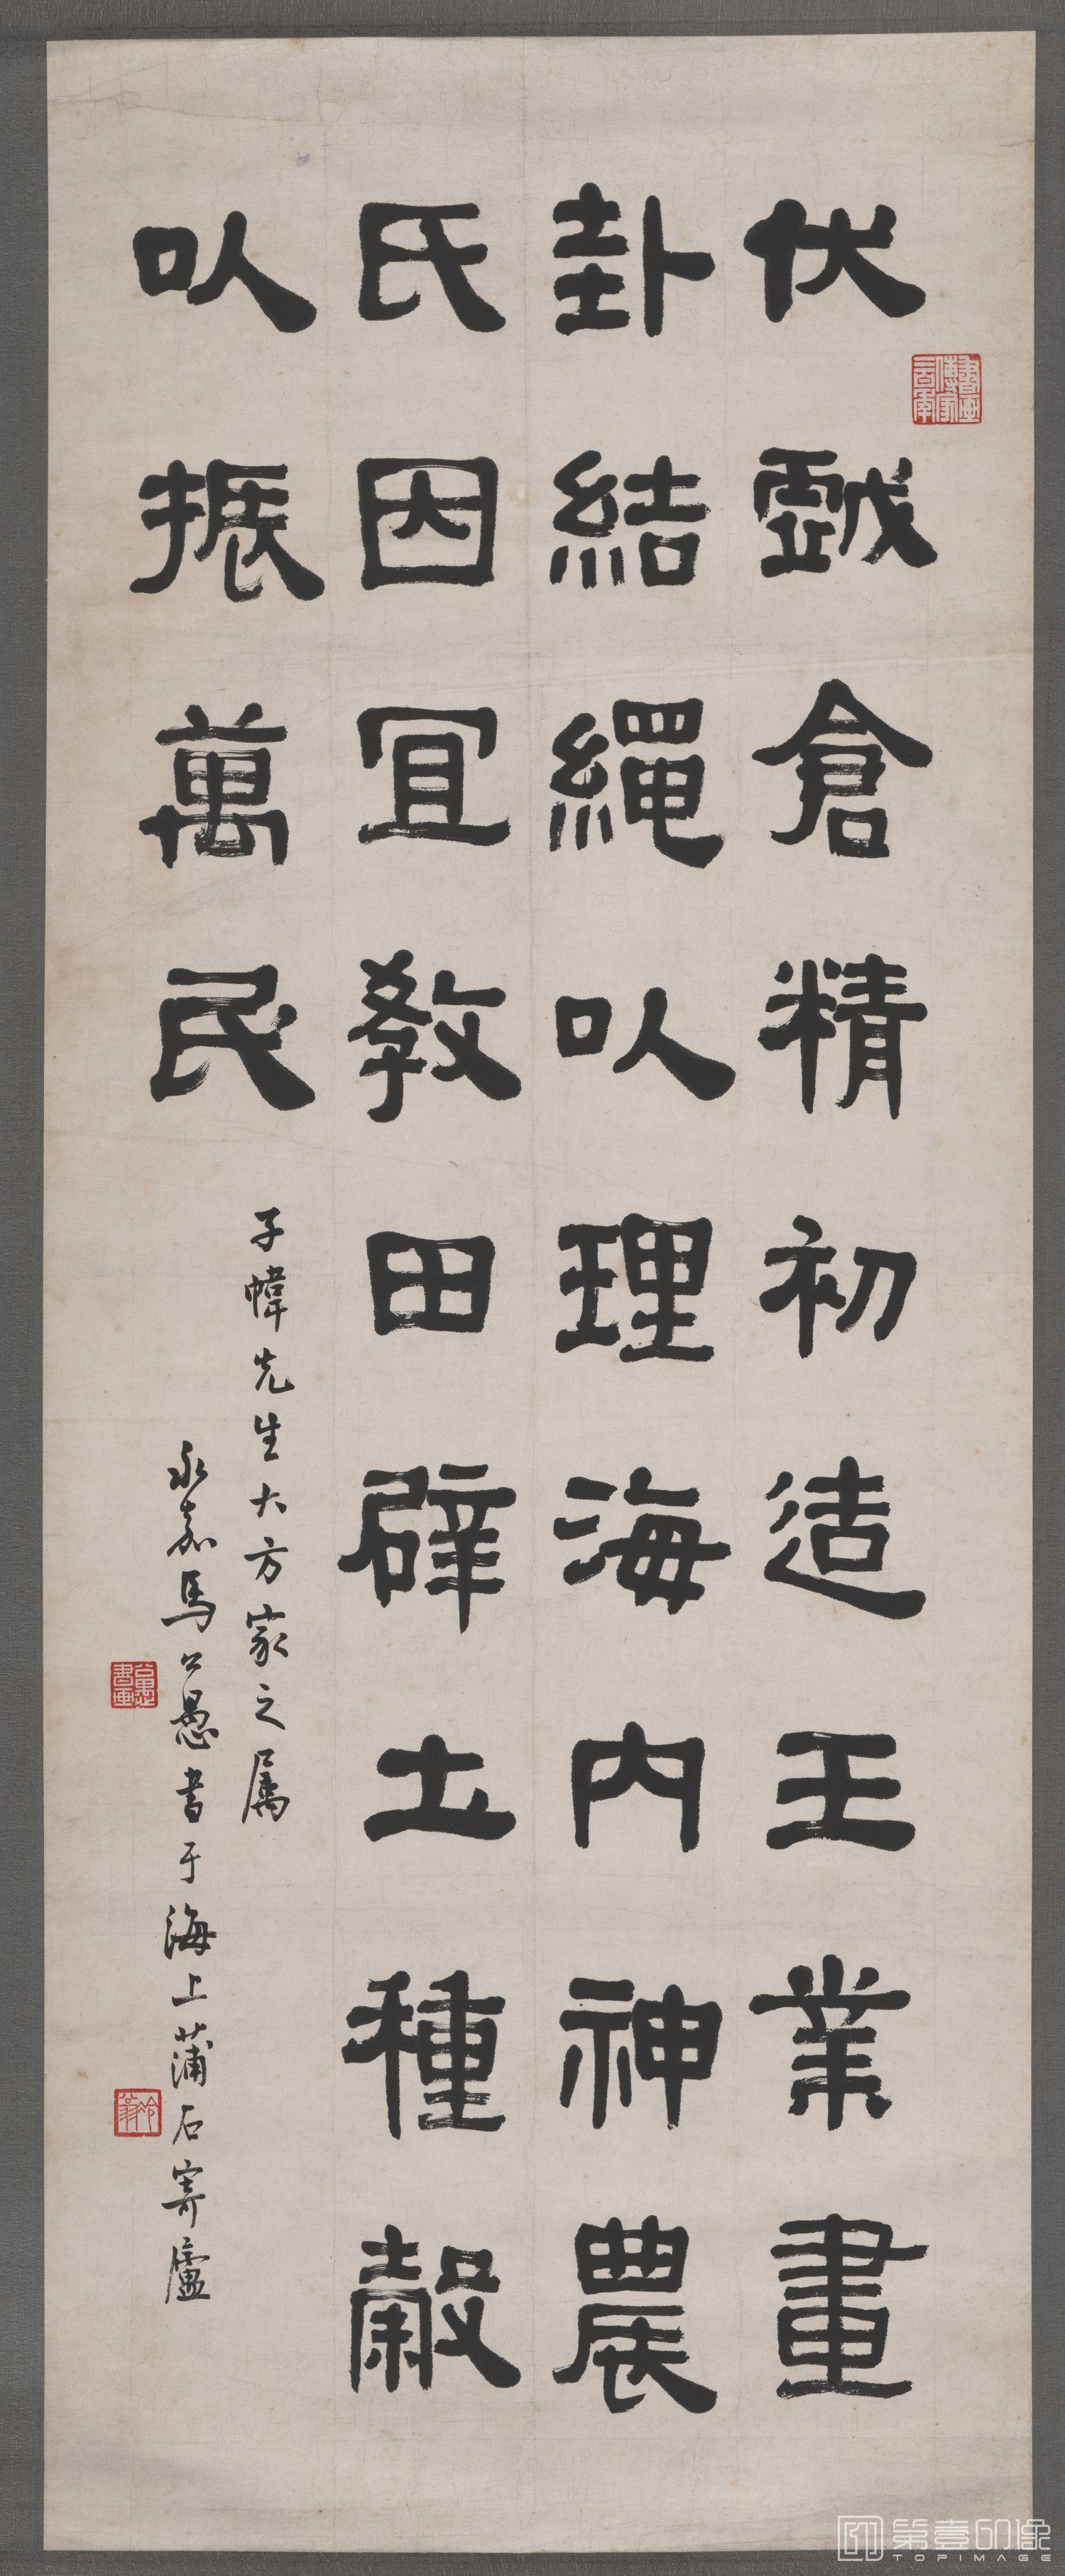 伏戲倉精初造王業畫
卦結繩以理海內神農
氏因宜教田辟土種穀
以振萬民
子幃先生大方家之屬
永嘉馬公愚書于海上蒲石寄廬
書畫傳家三百年
公愚書畫
冷翁
第壹印像
TOPIMAGE